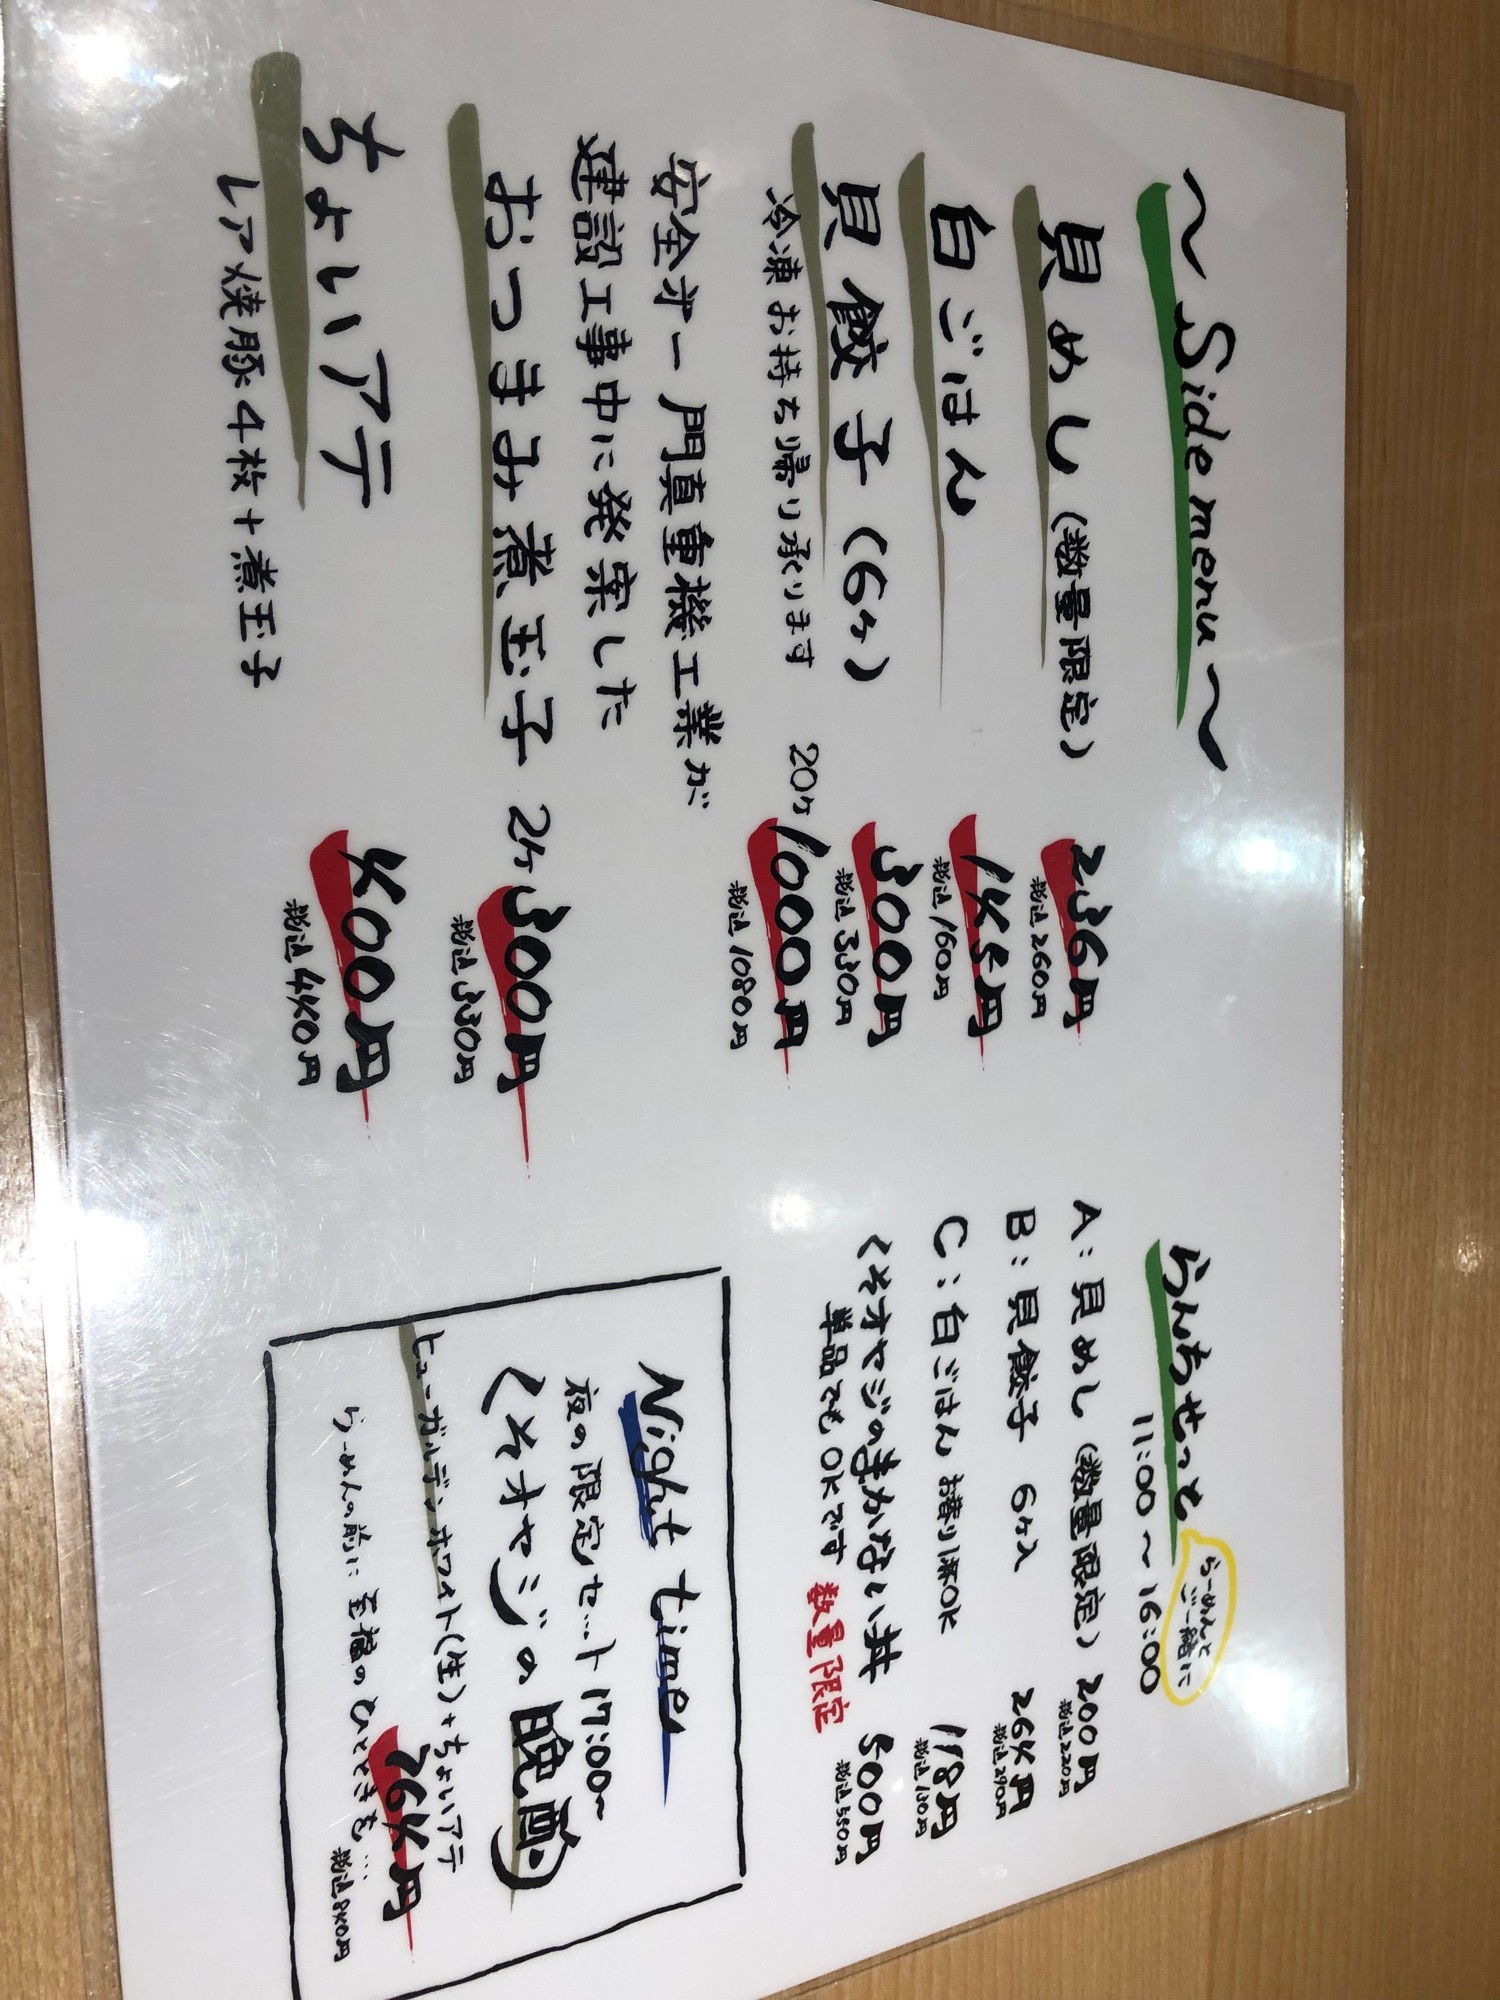 〜Side menu〜
貝めし(数量限定) 236円
税込260円
白ごはん 145円
税込160円
貝餃子(6ヶ) 300円
税込330円
冷凍お持ち帰り承ります 20ヶ 1000円
税込1080円
安全オー門真重機工業が
建設工事中に発案した
おつまみ煮玉子 2ヶ 300円
税込330円
ちょいアテ 400円
レア焼豚4枚+煮玉子 税込440円
らんちせっと
らーめんと
ご一緒に
11:00〜16:00
A:貝めし(数量限定) 200円
税込220円
B:貝餃子 6ヶ入 264円
税込290円
C:白ごはん お替り1杯OK 118円
税込130円
くそオヤジのまかない丼 500円
単品でもOKです 数量限定 税込550円
Night time
夜の限定セット 17:00〜
くそオヤジの晩酌
ヒューガルデンホワイト(生)+ちょいアテ
764円
らーめんの前に至福のひとときを… 税込840円